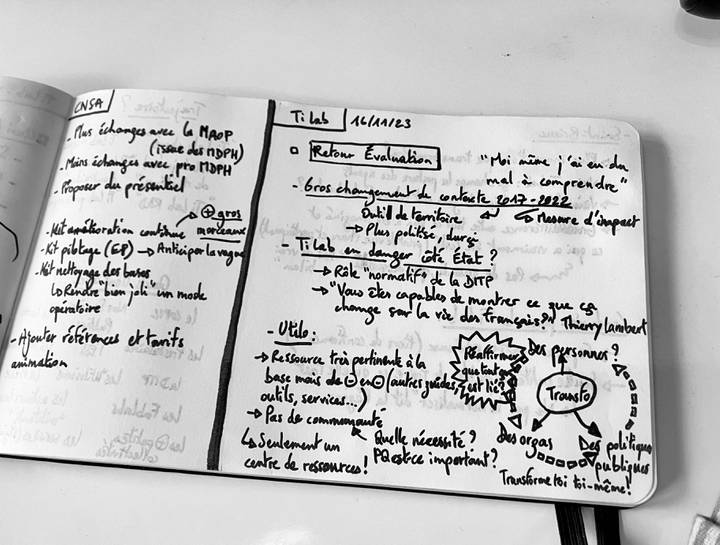 CNSA
- Plus échanges avec la MAOP
(issue des MDPH)
- Moins échanges avec pro MDPH
- Proposer du présentiel
- Kit amélioration continue → ⊕ gros
morceaux
- Kit pilotage (E8) → Anticiper la vague
- Kit nettoyage des bases
↳ Rendre "bien joli" un mode
opératoire
- Ajouter références et tarifs
animation
Ti Lab 16/11/23
Retour Évaluation
"Moi même j'ai eu du
mal à comprendre"
- Gros changement de contexte 2017-2022
Outil de territoire
Mesure d'impact
→ Plus politisé, durs
- TiLab en danger côté État ?
→ Rôle "normatif" de la DITP
→ "Vous êtes capables de montrer ce que ça
change sur la vie des français?" Thierry Lambert
- Utilo :
→ Ressource très pertinente à la
base mais de ⊖ en ⊖ (autres guides,
outils, services...)
→ Pas de communauté
↳ Seulement un
centre de ressources !
Quelle nécessité ?
PQ est ce important ?
Réaffirmer
que tout
est lié !
Des personnes ?
Transfo
Des orgas
Des politiques
publiques
Transforme toi toi-même !